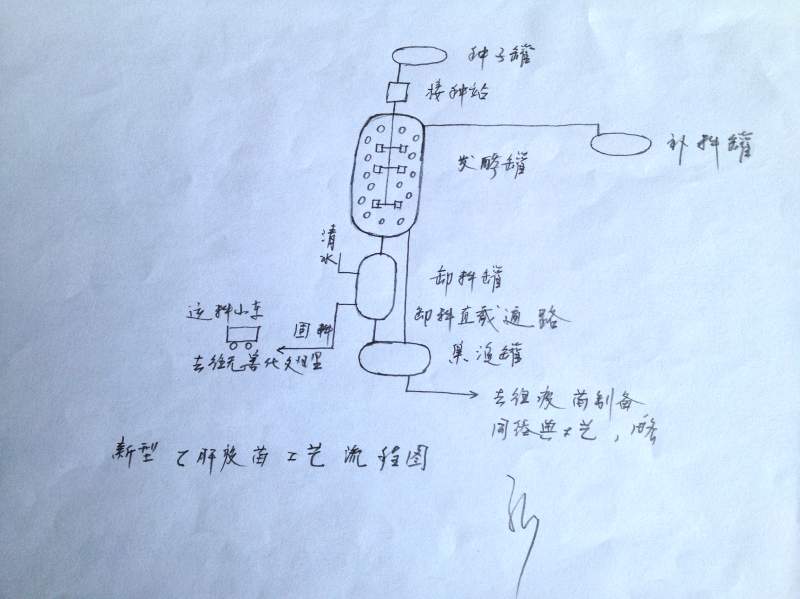 种子罐
接种站
补料罐
发酵罐
清水
卸料罐
卸料直截通路
运料小车
固料
集渣罐
去往无害化处理
去往疫苗制备
同经典工艺，略
新型乙肝疫苗工艺流程图